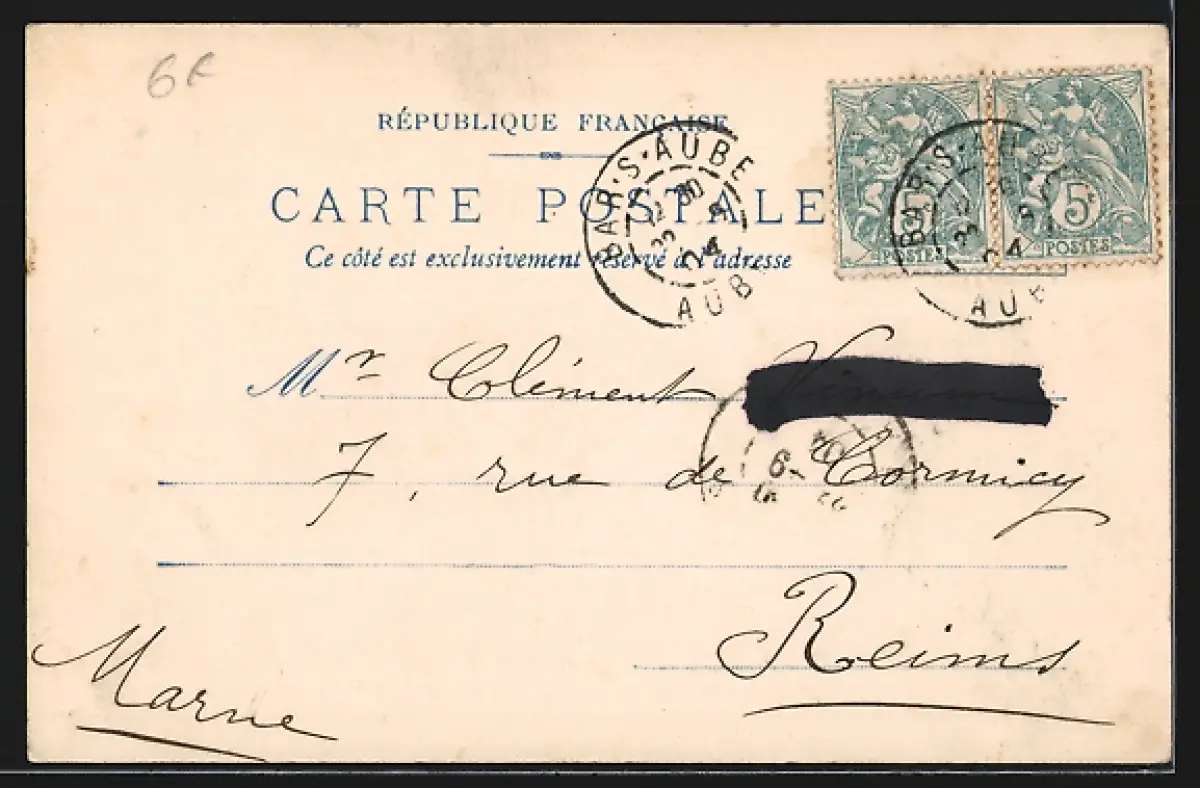 6f
RÉPUBLIQUE FRANÇAISE
CARTE POSTALE
Ce côté est exclusivement réservé à l'adresse
BAR-S-AUBE
AUBE
BAR-S-AUBE
AUBE
5c
POSTES
POSTES
Mr Clément
7, rue de Cormicy
Reims
Marne